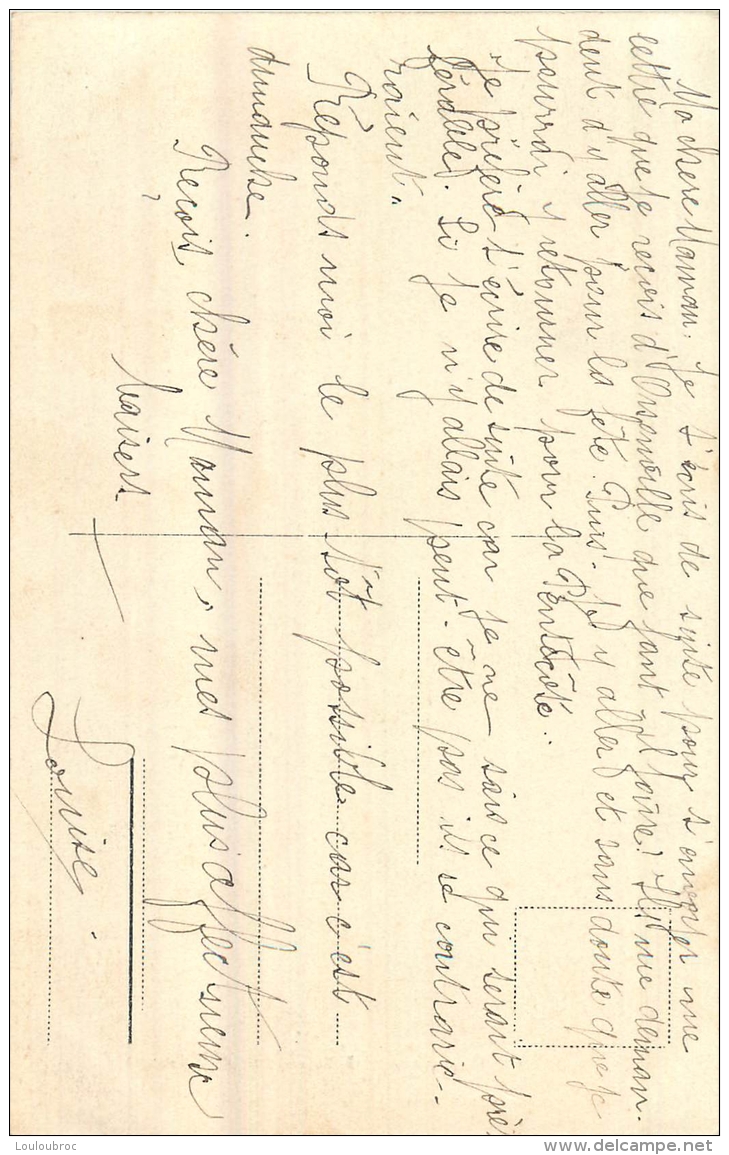 Ma chère Maman. Je t'écris de suite pour t'envoyer une
lettre que je reçois d'Ansenville que faut-il faire? Ils me deman-
dent d'y aller pour la fête. Puis-je y aller et sans doute que je
pourrai y retourner pour la Pentecôte.
Je préfère t'écrire de suite car je ne sais ce qui serait pré-
férable. Si je n'y allais peut-être pas ils se contrarie-
raient.
Réponds moi le plus tôt possible car c'est
dimanche.
Reçois, chère Maman, mes plus affectueux
baisers
Louise.
Louloubroc
www.delcampe.net